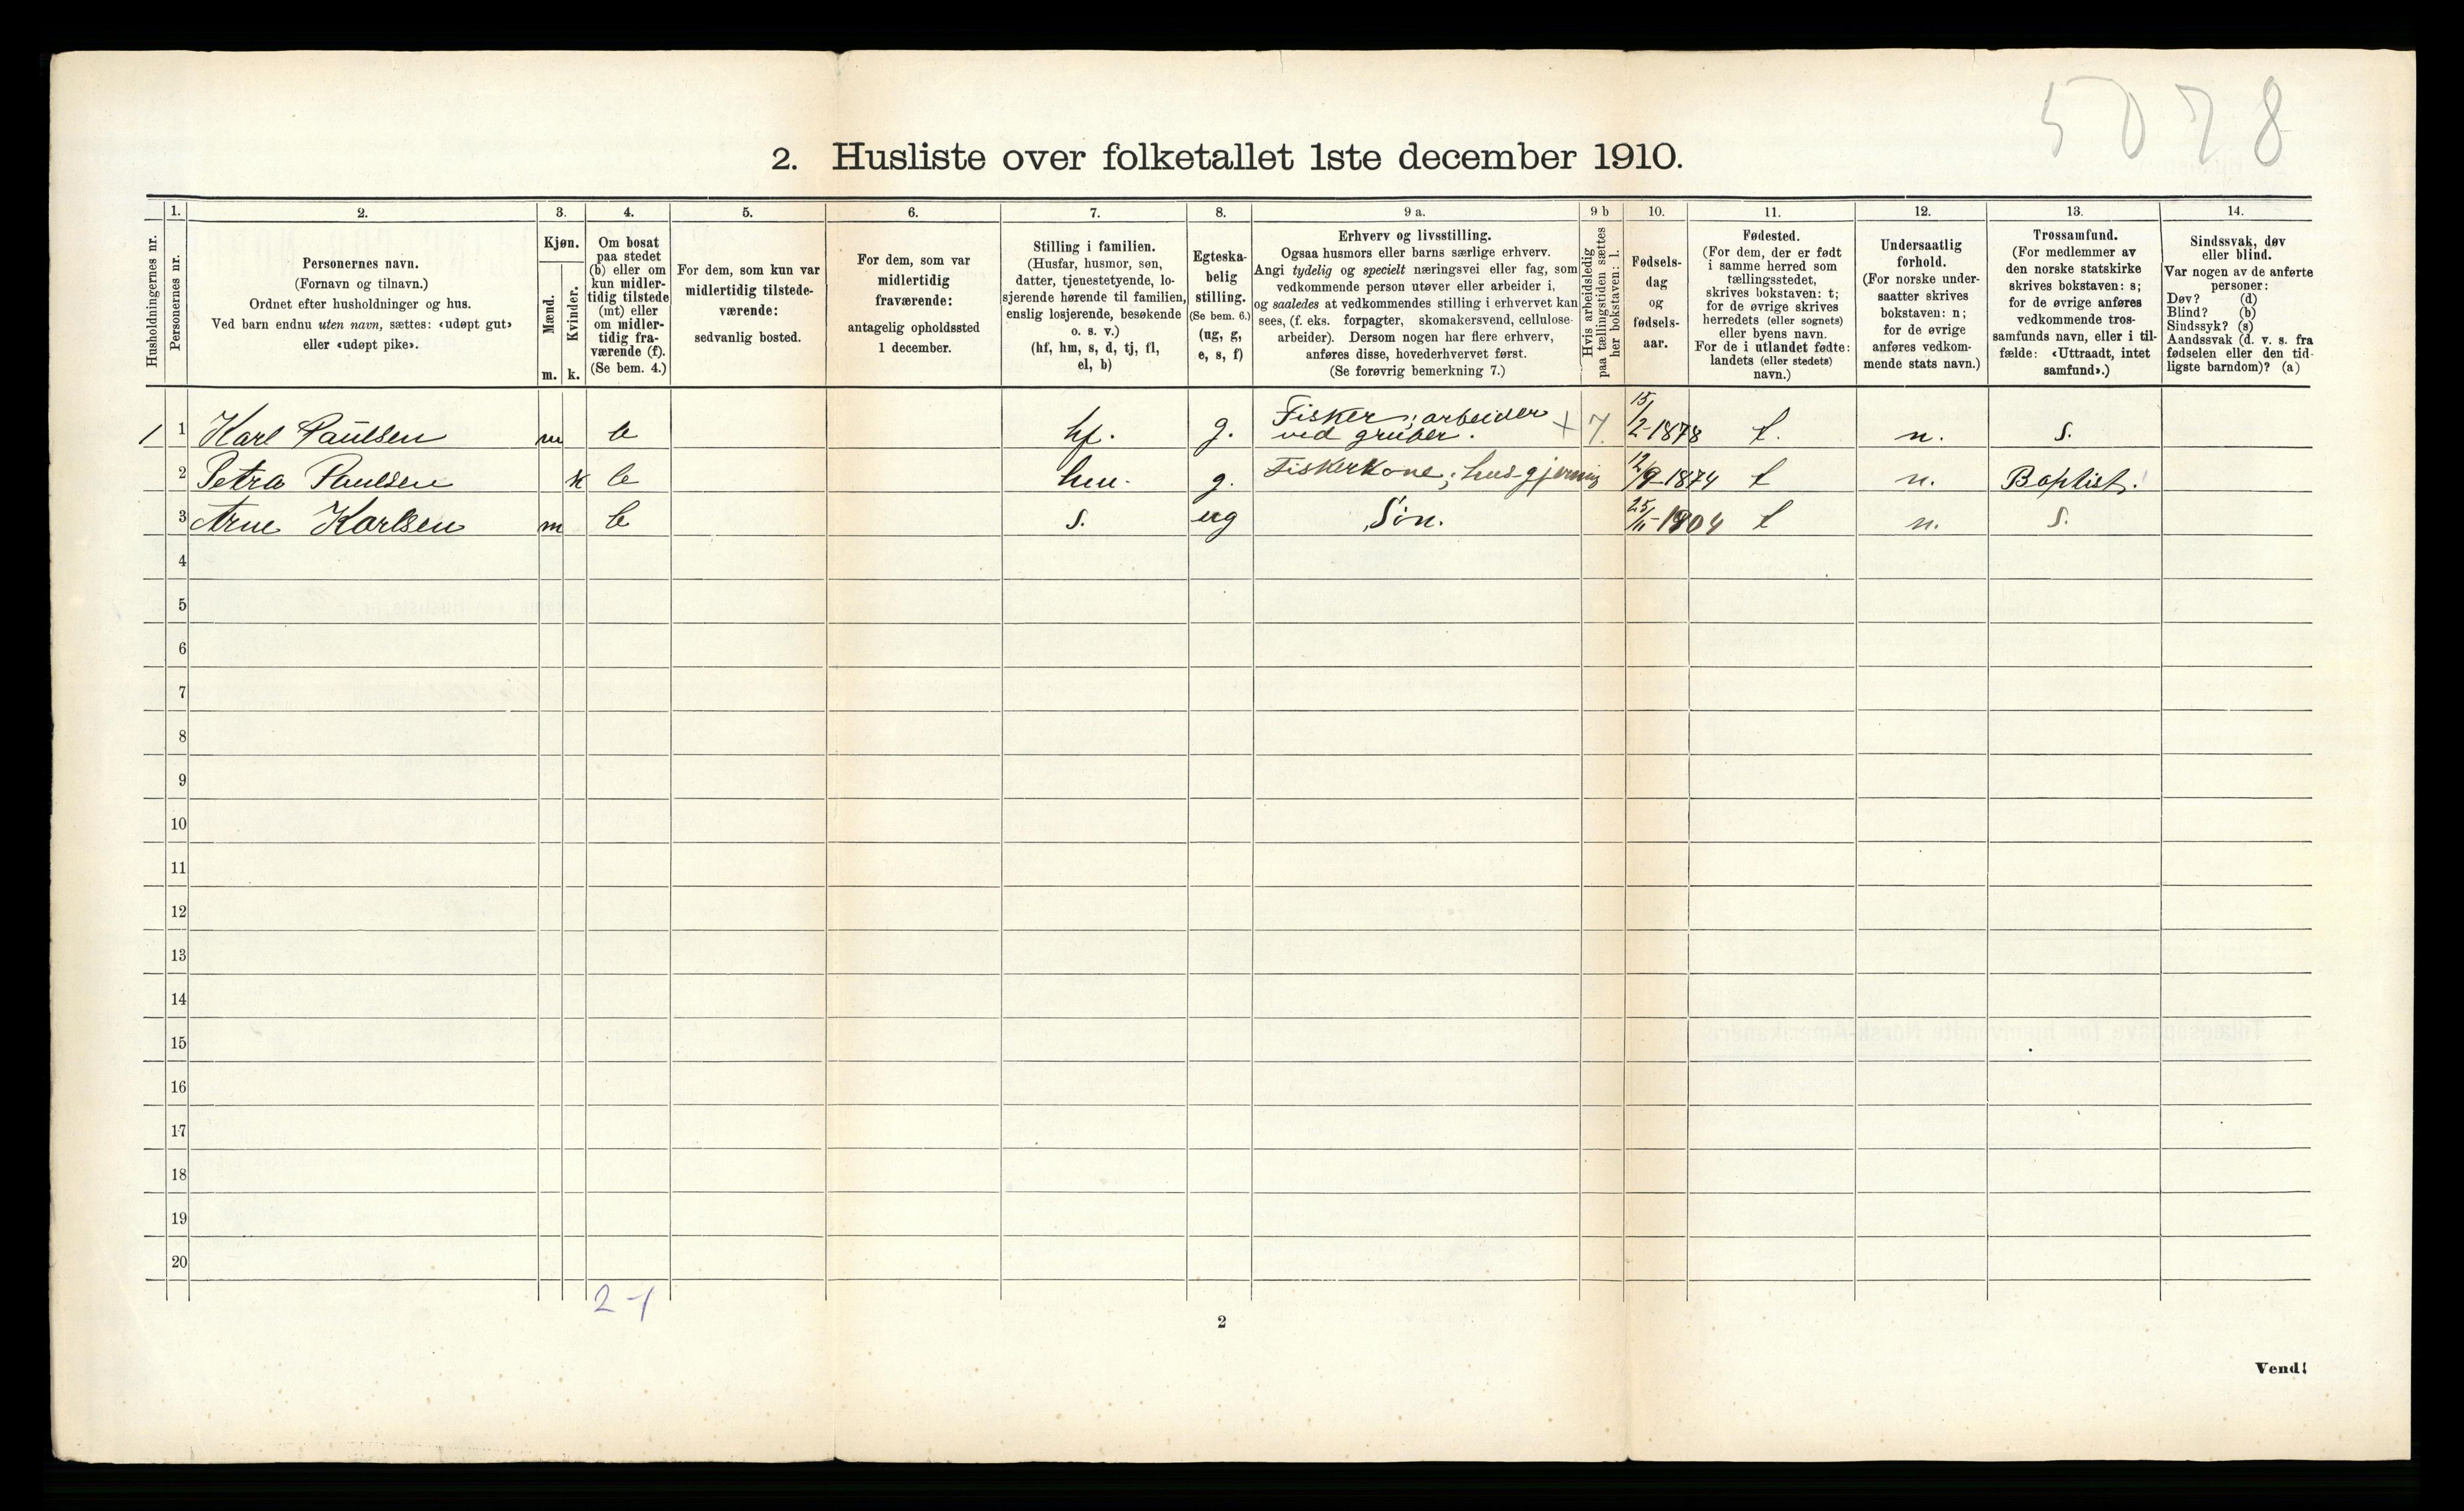 5078
2. Husliste over folketallet 1ste december 1910.
1. 2. 3. 4. 5. 6. 7. 8. 9 a. 9 b 10. 11. 12. 13. 14.
Husholdningernes nr.
Personernes nr.
Personernes navn.
(Fornavn og tilnavn.)
Ordnet efter husholdninger og hus.
Ved barn endnu uten navn, sættes: «udøpt gut»
eller «udøpt pike».
Kjøn.
Mænd.
Kvinder.
m. k.
Om bosat
paa stedet
(b) eller om
kun midler-
tidig tilstede
(mt) eller
om midler-
tidig fra-
værende (f).
(Se bem. 4.)
For dem, som kun var
midlertidig tilstede-
værende:
sedvanlig bosted.
For dem, som var
midlertidig
fraværende:
antagelig opholdssted
1 december.
Stilling i familien.
(Husfar, husmor, søn,
datter, tjenestetyende, lo-
sjerende hørende til familien,
enslig losjerende, besøkende
o. s. v.)
(hf, hm, s, d, tj, fl,
el, b)
Egteska-
belig
stilling.
(Se bem. 6.)
(ug, g,
e, s, f)
Erhverv og livsstilling.
Ogsaa husmors eller barns særlige erhverv.
Angi tydelig og specielt næringsvei eller fag, som
vedkommende person utøver eller arbeider i,
og saaledes at vedkommendes stilling i erhvervet kan
sees, (f. eks. forpagter, skomakersvend, cellulose-
arbeider). Dersom nogen har flere erhverv,
anføres disse, hovederhvervet først.
(Se forøvrig bemerkning 7.)
Hvis arbeidsledig
paa tællingstiden sættes
her bokstaven: l.
Fødsels-
dag
og
fødsels-
aar.
Fødested.
(For dem, der er født
i samme herred som
tællingsstedet,
skrives bokstaven: t;
for de øvrige skrives
herredets (eller sognets)
eller byens navn.
For de i utlandet fødte:
landets (eller stedets)
navn.)
Undersaatlig
forhold.
(For norske under-
saatter skrives
bokstaven: n;
for de øvrige
anføres vedkom-
mende stats navn.)
Trossamfund.
(For medlemmer av
den norske statskirke
skrives bokstaven: s;
for de øvrige anføres
vedkommende tros-
samfunds navn, eller i til-
fælde: «Uttraadt, intet
samfund».)
Sindssvak, døv
eller blind.
Var nogen av de anførte
personer:
Døv? (d)
Blind? (b)
Sindssyk? (s)
Aandssvak (d. v. s. fra
fødselen eller den tid-
ligste barndom)? (a)
1 1 Karl Paulsen m b hf. g. Fisker; arbeider ved gruber. + 7. 15/2-1878 t. n. s.
2 Petra Paulsen k b hm. g. Fiskerkone; husgjerning 12/9-1874 t n. Baptist.
3 Arne Karlsen m b s. ug Søn. 25/11-1904 t n. s.
4
5
6
7
8
9
10
11
12
13
14
15
16
17
18
19
20
2-1
2
Vend!